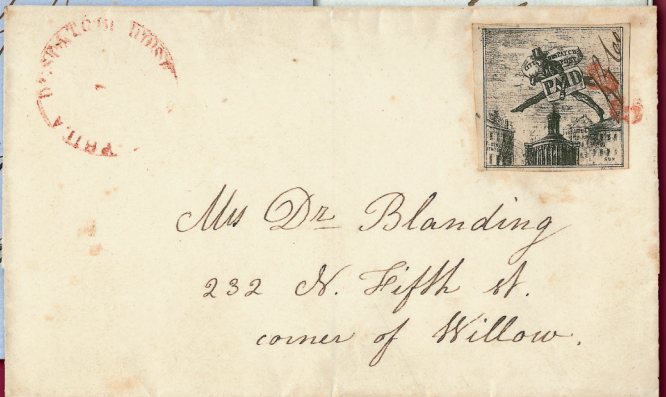 PHILA DESPATCH POST
DESPATCH
POST
PMD
Mrs Dr. Blanding
232 N. Fifth st.
corner of Willow.